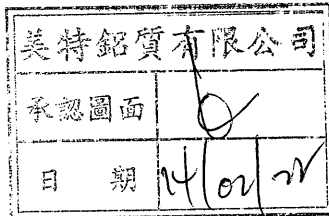 美特鋁質有限公司
承認圖面
日 期 14/02/